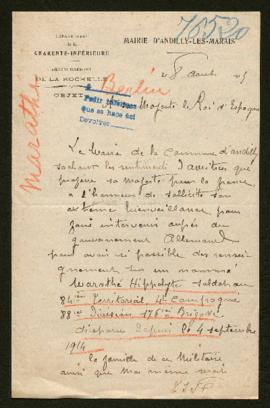 DÉPARTEMENT
DE LA
CHARENTE-INFÉRIEURE
DE LA ROCHELLE
OBJET
MAIRIE D'ANDILLY-LES-MARAIS
70520
8 Août
Marathé
Berlin
Pedir informes
que se hace del
Devolver
Majesté le Roi d'Espagne
Le Maire de la Commune d'Andilly
sachant les sentiments d'amitiés que
professe sa majesté pour la france
a l'honneur de solliciter son
extrême bienveillance pour
faire intervenir auprès du
gouvernement Allemand
pour avoir si possible des rensei
gnements sur un nommé
Marathé Hippolyte soldat au
84ème Territorial 4e Compagnie
88ème Division 176ème Brigade
disparu depuis le 4 septembre
1914
La famille de ce militaire
ainsi que moi même serait